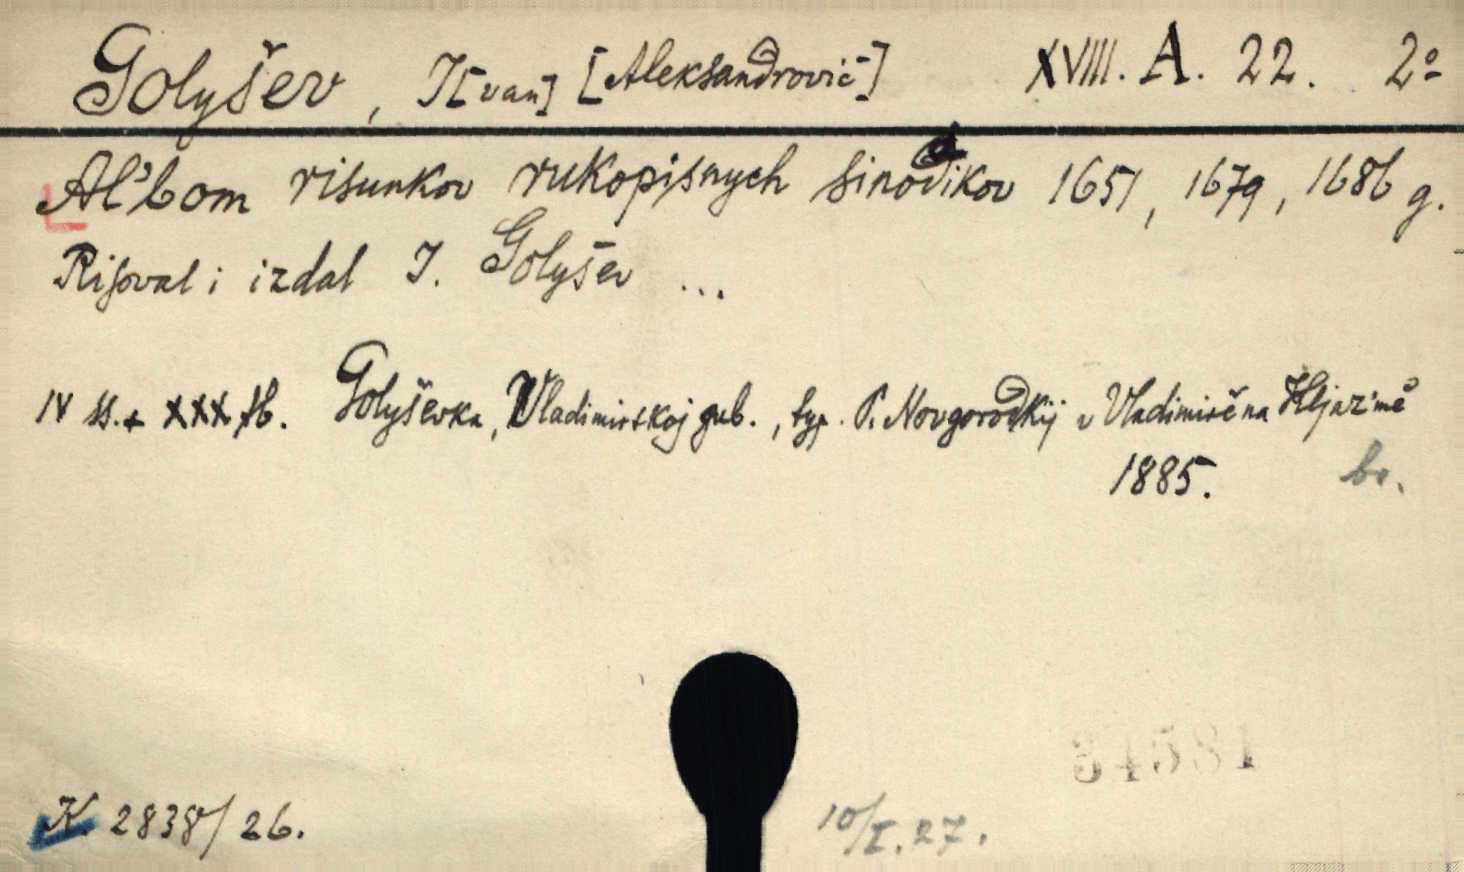 Golyšev, I[van] [Aleksandrovič] XVIII. A. 22. 2º
Al'bom risunkov rukopisnych sinodikov 1651, 1679, 1686 g.
Risoval i izdal I. Golyšev ...
IV ss. + XXX tb. Golyševka, Vladimirskoj gub., typ. P. Novgorodkij v Vladimirě na Kljaz'mě
1885. br.
34581
K 2838/26. 10/I.27.